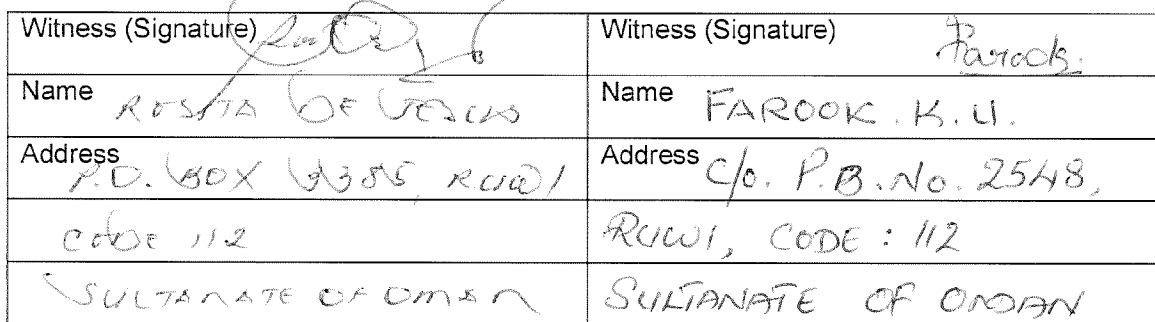 Witness (Signature) Witness (Signature) Farook.
Name ROSITA DE Name FAROOK. K. U.
Address P.O. BOX 3385, RUWI Address C/o. P.B. No. 2548,
CODE 112 RUWI, CODE : 112
SULTANATE OF OMAN SULTANATE OF OMAN